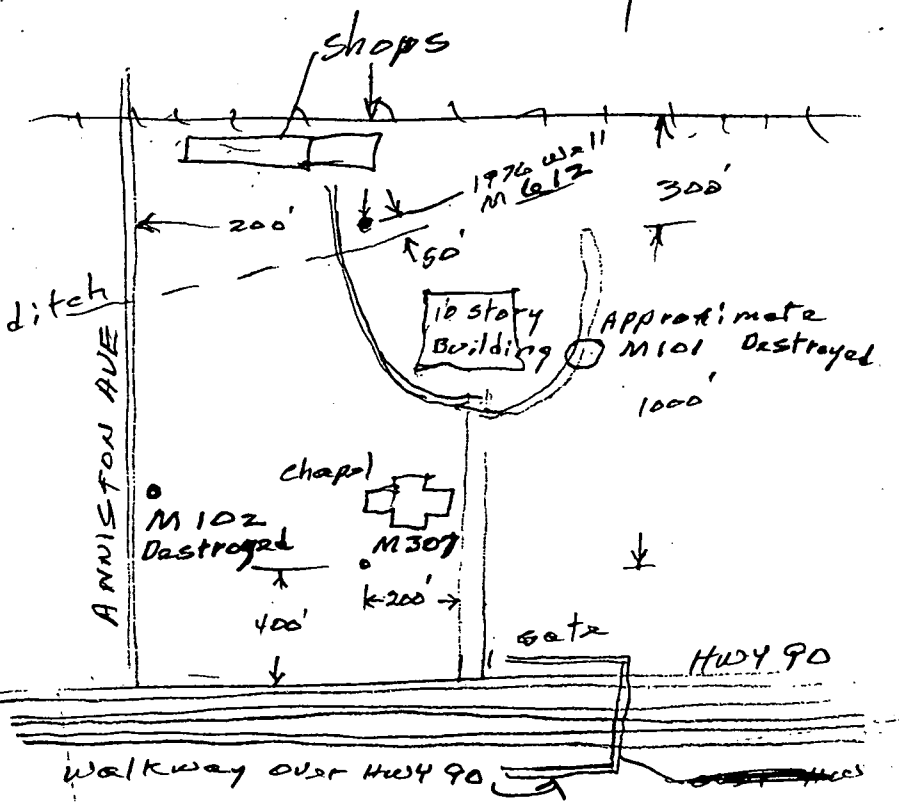 shops
1976 well
M 612
300'
200'
50'
ditch
10 story
Building
Approximate
M101 Destroyed
1000'
ANNISTON AVE
chapel
M 102
Destroyed
M307
200'
400'
Gate
HWY 90
Walkway over HWY 90